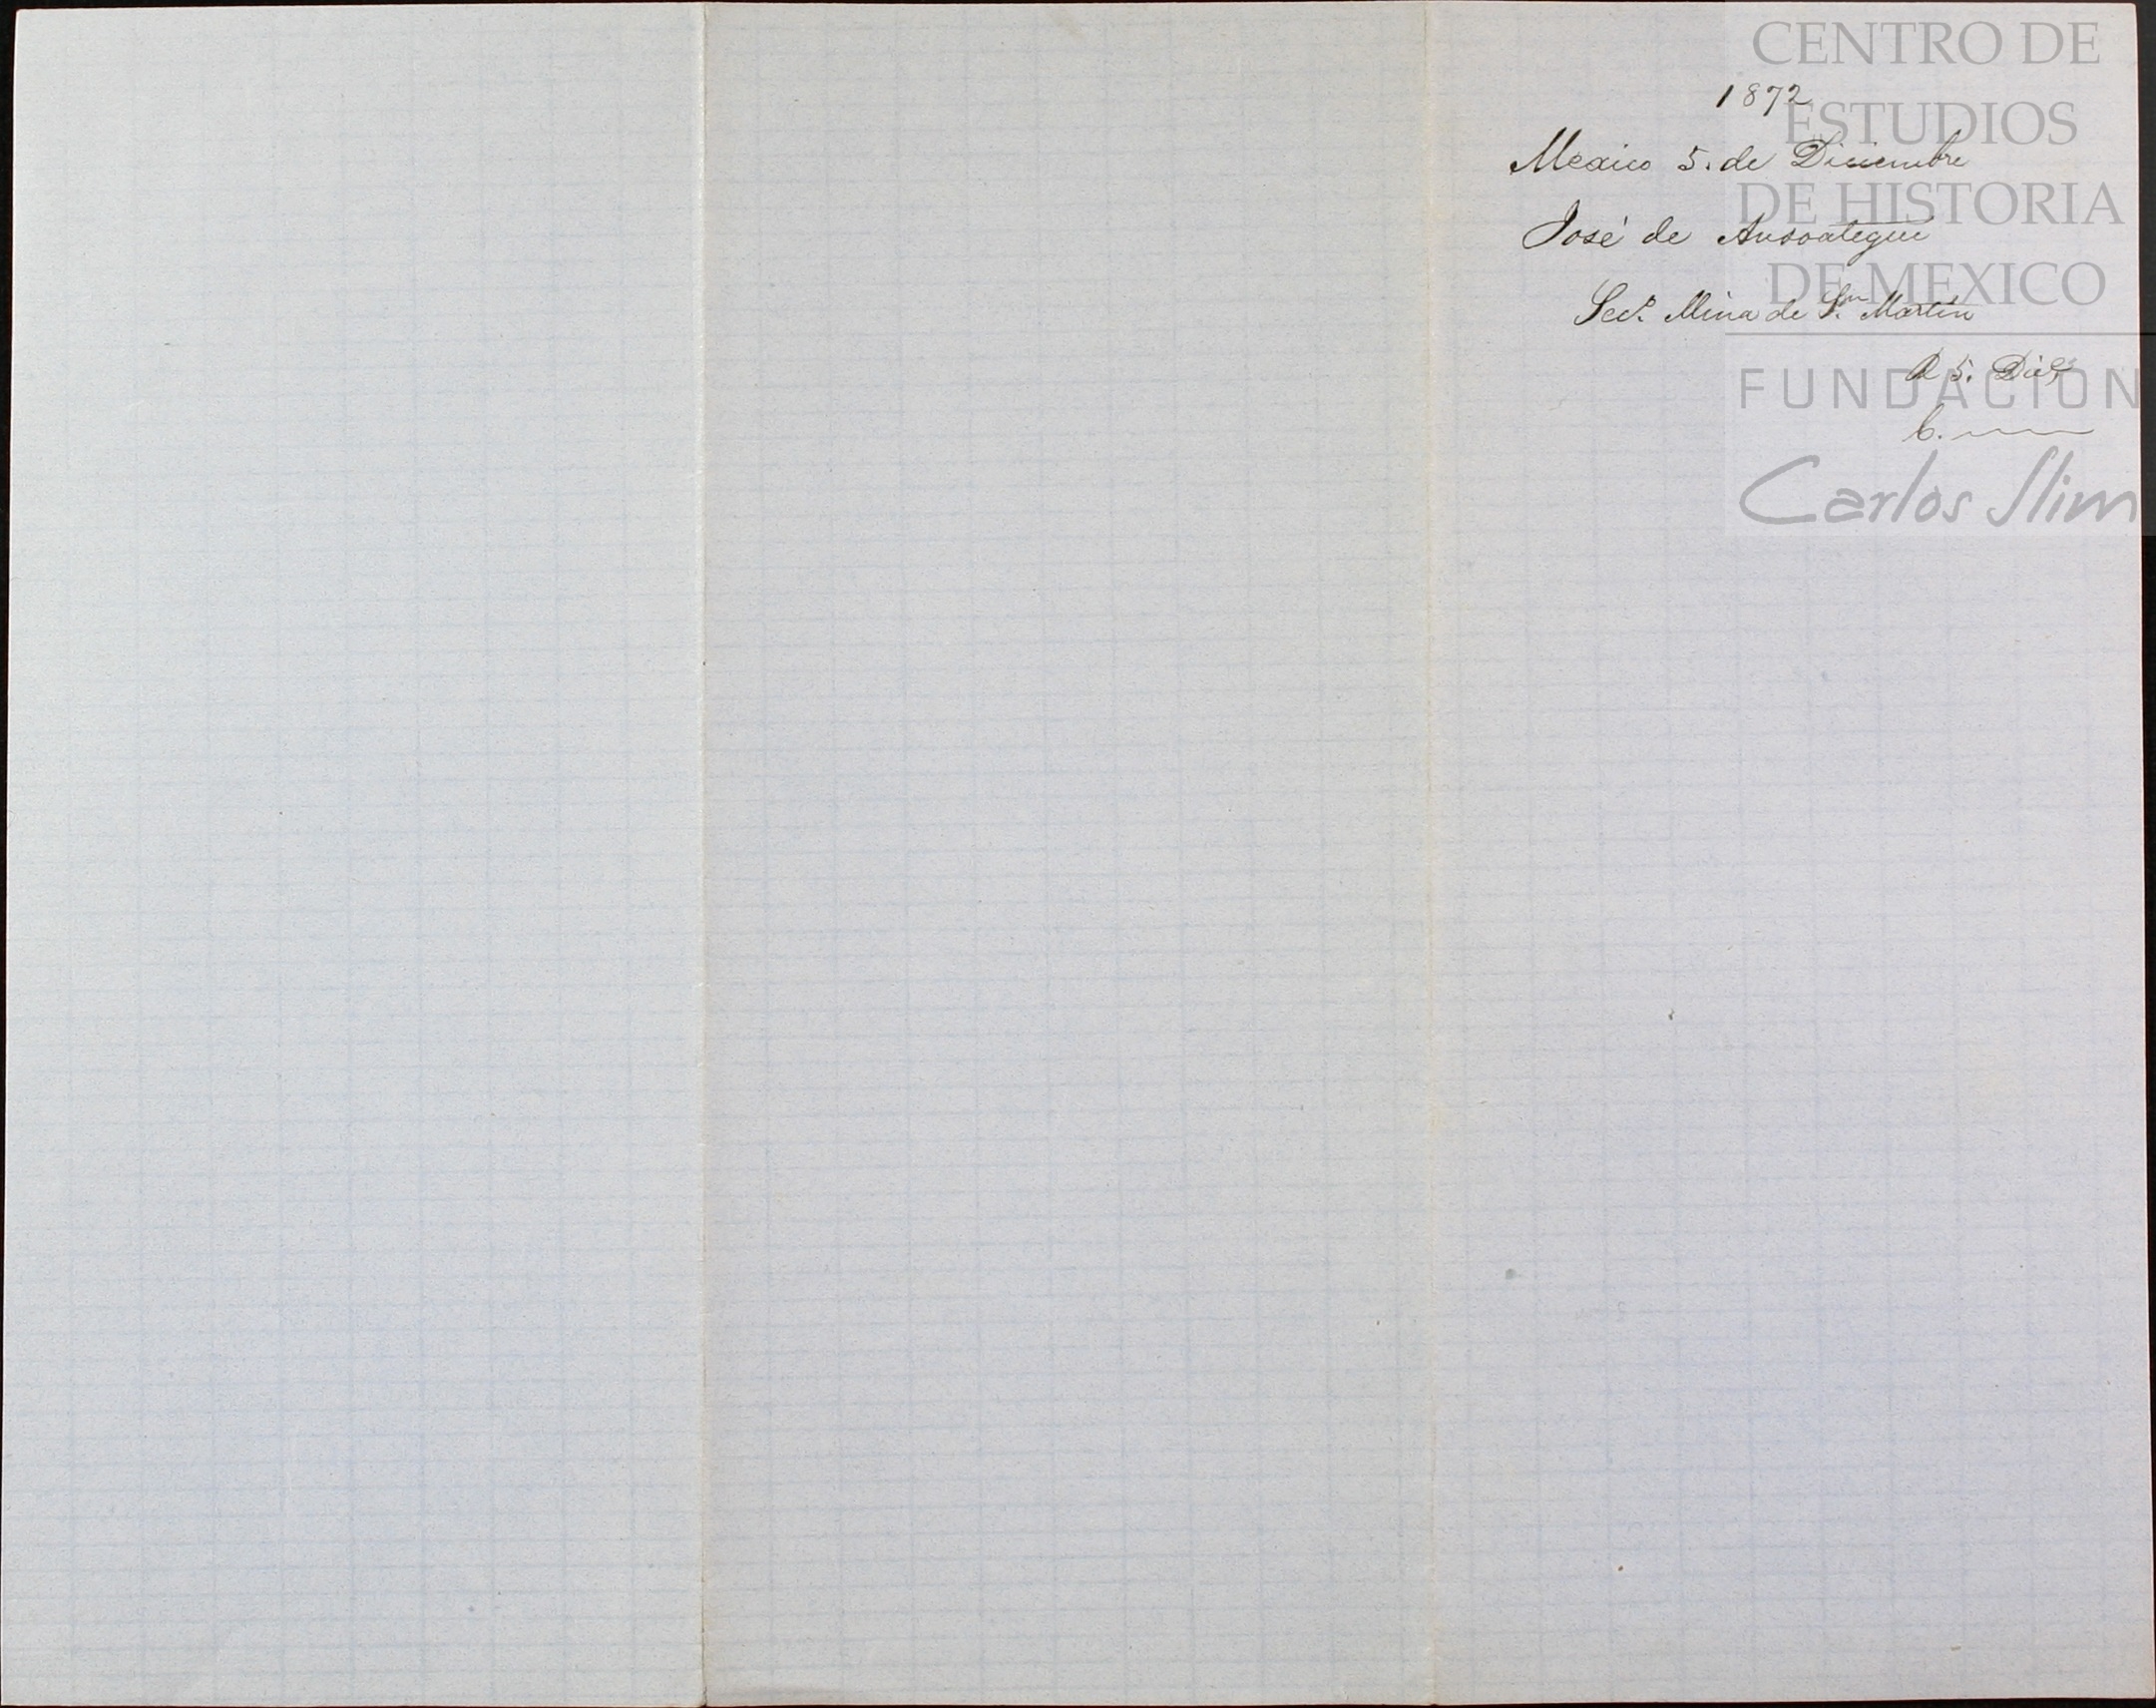 1872
Mexico 5. de Diciembre
José de Ansoategui
Sec.º Mina de S.n Martin
R 5. Dic.e
C.
CENTRO DE
ESTUDIOS
DE HISTORIA
DE MEXICO
FUNDACION
Carlos Slim